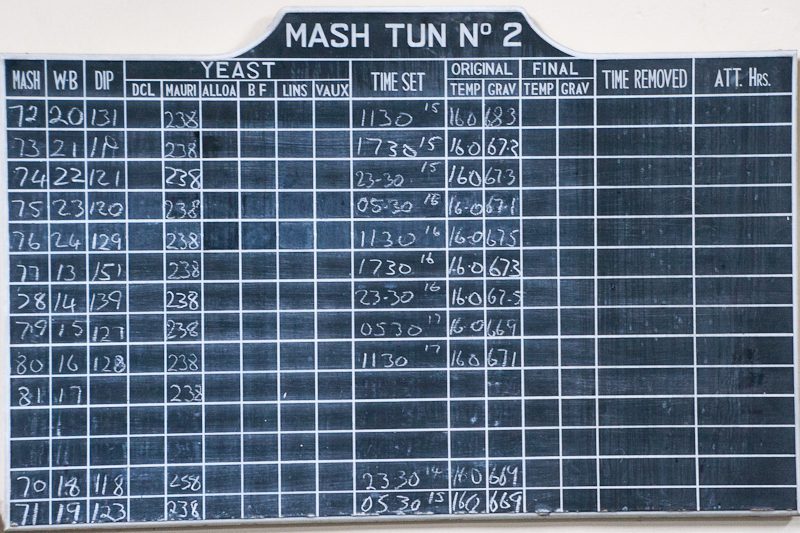 MASH TUN Nº 2
MASH W-B DIP YEAST TIME SET ORIGINAL FINAL TIME REMOVED ATT. HRS.
DCL MAURI ALLOA B F LINS VAUX TEMP GRAV TEMP GRAV
72 20 131 238 1130 15 16.0 683
73 21 238 1730 15 16.0 673
74 22 121 238 23-30 15 16.0 673
75 23 120 238 05-30 16 16.0 67.1
76 24 129 238 1130 16 16.0 675
77 13 151 238 1730 16 16.0 673
78 14 139 238 23-30 16 16.0 67.5
79 15 127 238 0530 17 16.0 669
80 16 128 238 1130 17 16.0 671
81 17 238
70 18 118 258 2330 14 16.0 669
71 19 123 238 0530 15 160 669